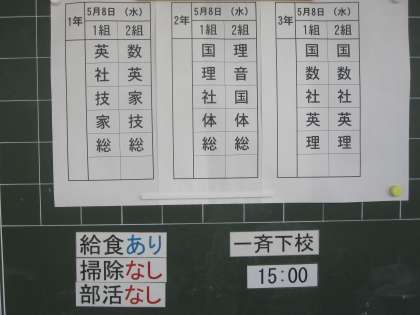 1年 5月8日 (水)
1組 2組
英 数
社 英
技 家
家 技
総 総
2年 5月8日 (水)
1組 2組
国 理
理 音
社 国
体 体
総 総
3年 5月8日 (水)
1組 2組
国 国
数 数
社 社
英 英
理 理
給食あり
掃除なし
部活なし
一斉下校
15:00